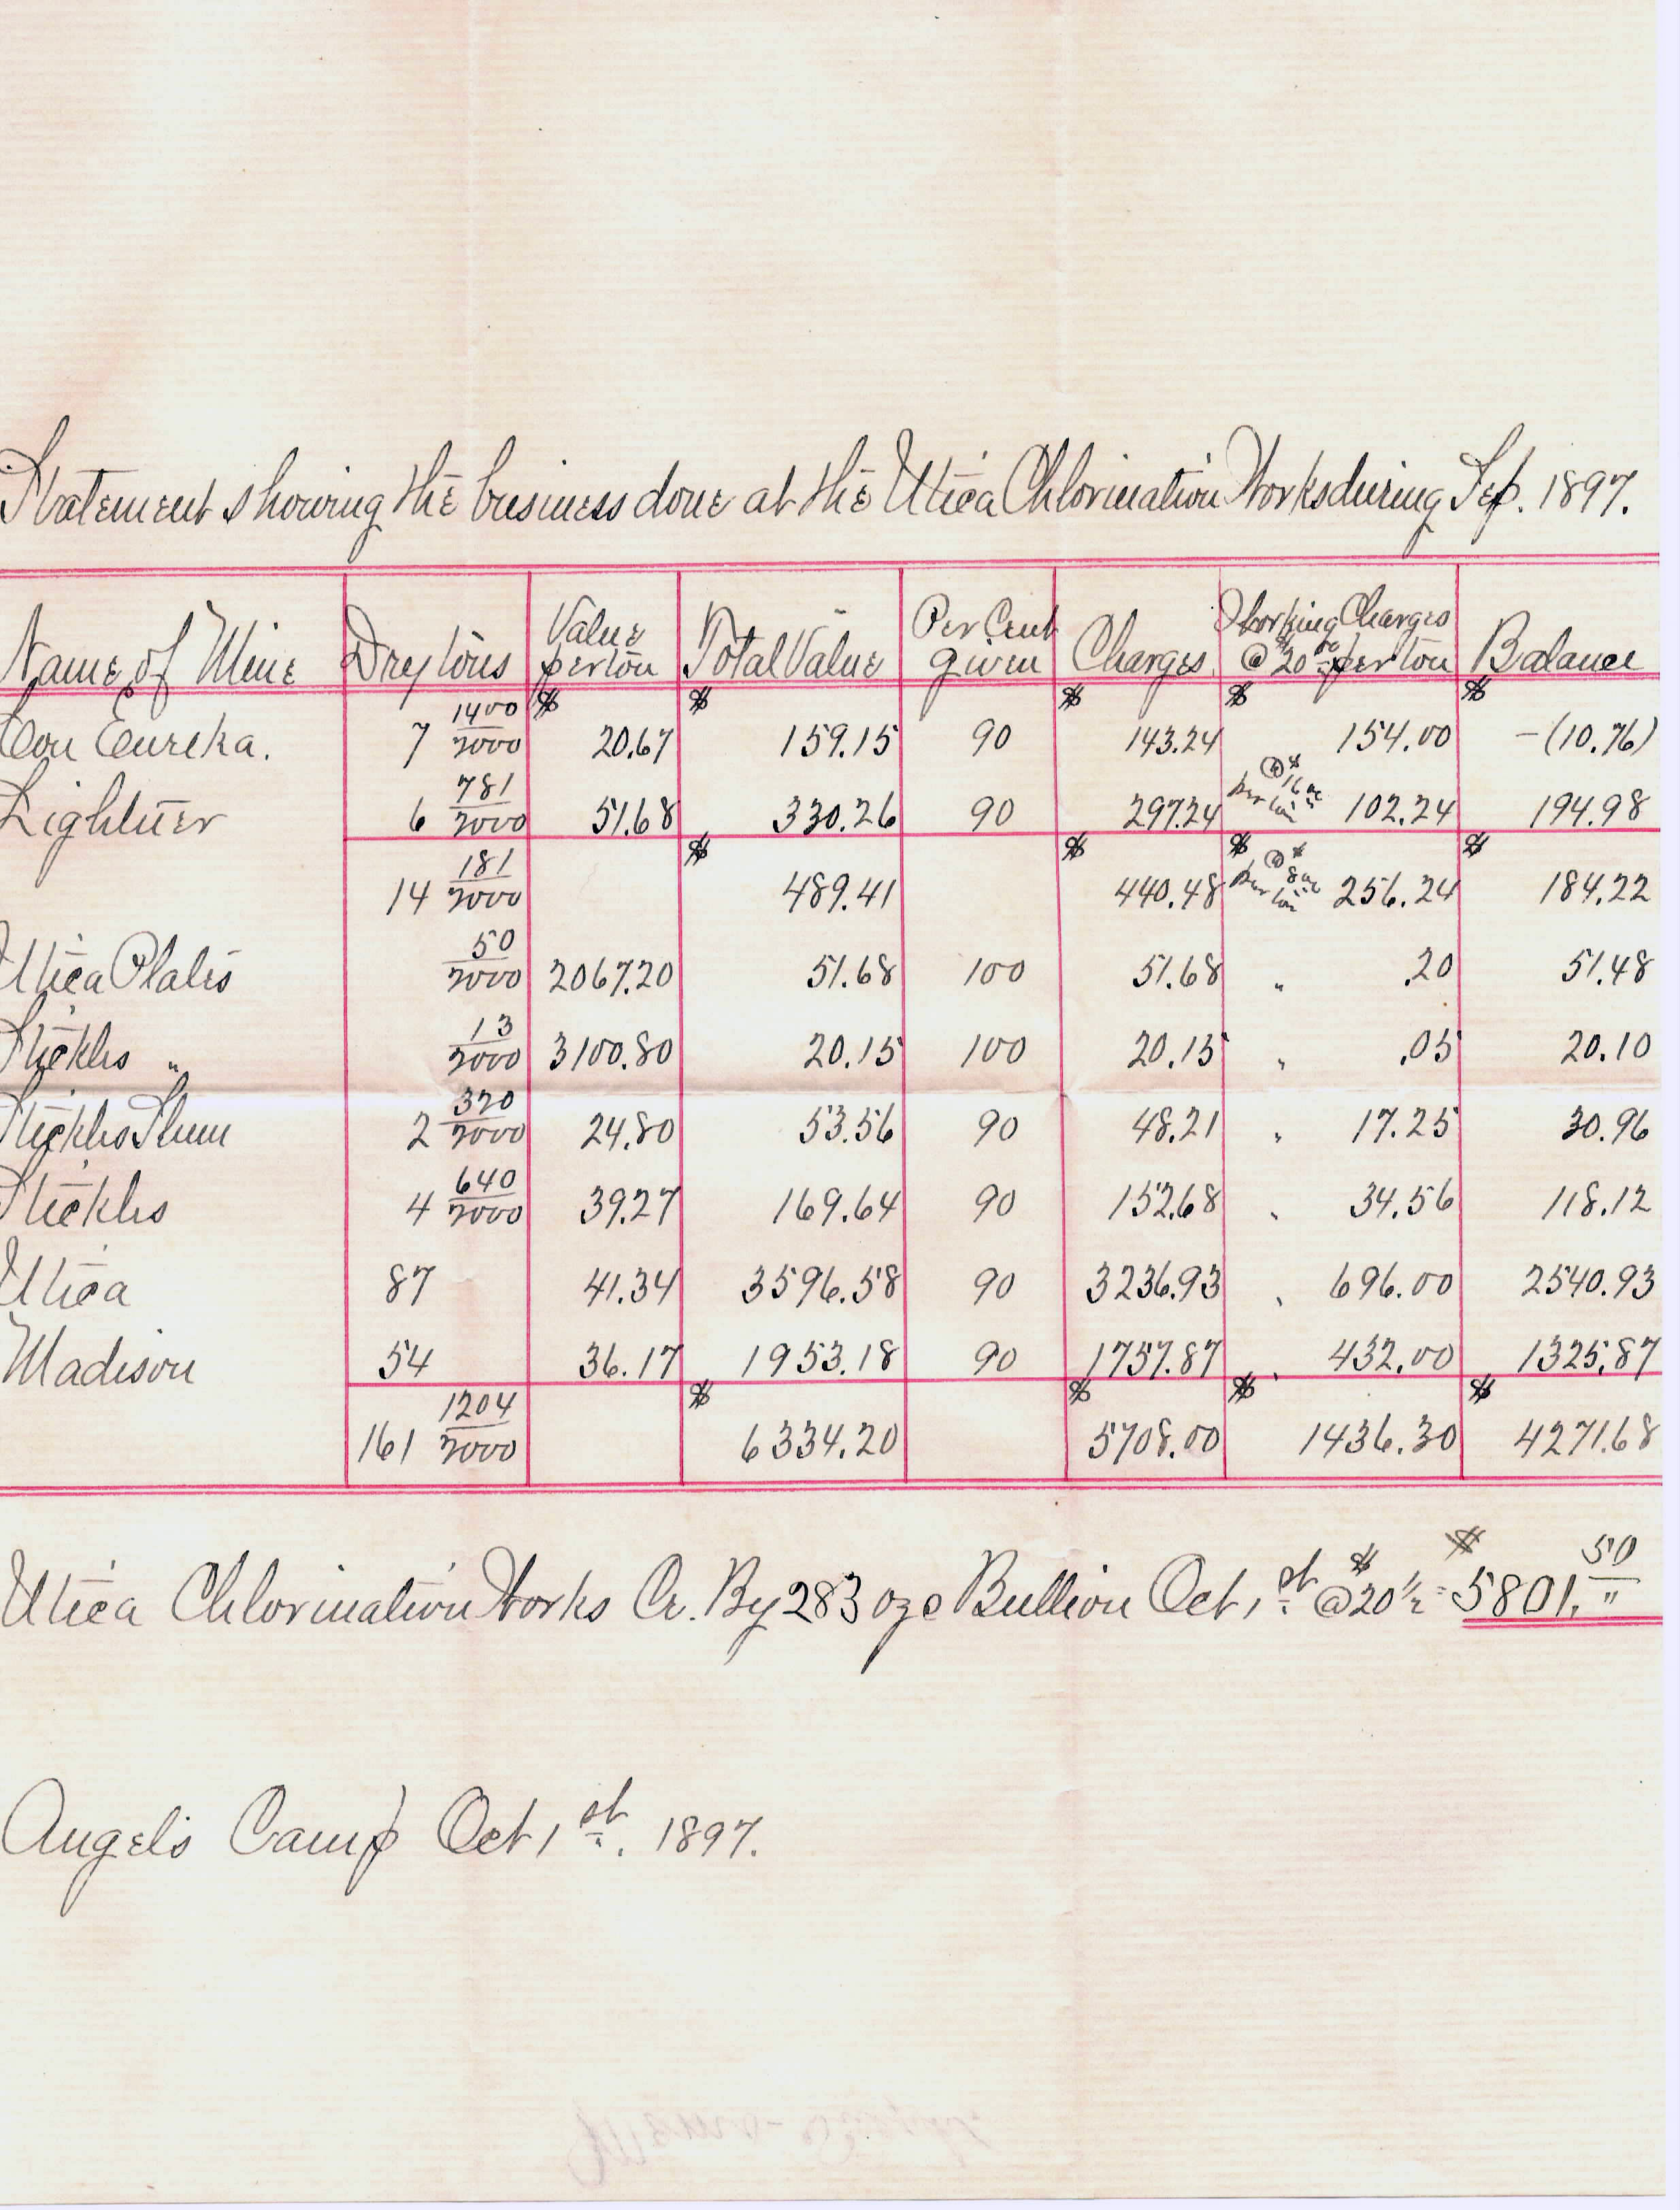 Statement showing the business done at the Utica Chlorination Works during Sep. 1897.
Name of Mine Dry tons Value per ton Total Value Per Cent given Charges Working Charges @ $20 00 per ton Balance
$ $ $ $ $
Con Eureka. 7 1400/2000 20.67 159.15 90 143.24 154.00 -(10.76)
Lightner 6 781/2000 51.68 330.26 90 297.24 @ $16 00 per ton 102.24 194.98
$ $ $ $
14 181/2000 489.41 440.48 @ $8 00 per ton 256.24 184.22
Utica Plates 50/2000 2067.20 51.68 100 51.68 " .20 51.48
Stickles " 13/2000 3100.80 20.15 100 20.15 " .05 20.10
Stickles Slum 2 320/2000 24.80 53.56 90 48.21 " 17.25 30.96
Stickles 4 640/2000 39.27 169.64 90 152.68 " 34.56 118.12
Utica 87 41.34 3596.58 90 3236.93 " 696.00 2540.93
Madison 54 36.17 1953.18 90 1757.87 " 432.00 1325.87
$ $ $ $
161 1204/2000 6334.20 5708.00 1436.30 4271.68
Utica Chlorination Works Cr. By 283 ozs Bullion Oct, 1st @ $20 1/2 = $5801. 50/"
Angels Camp Oct 1st. 1897.